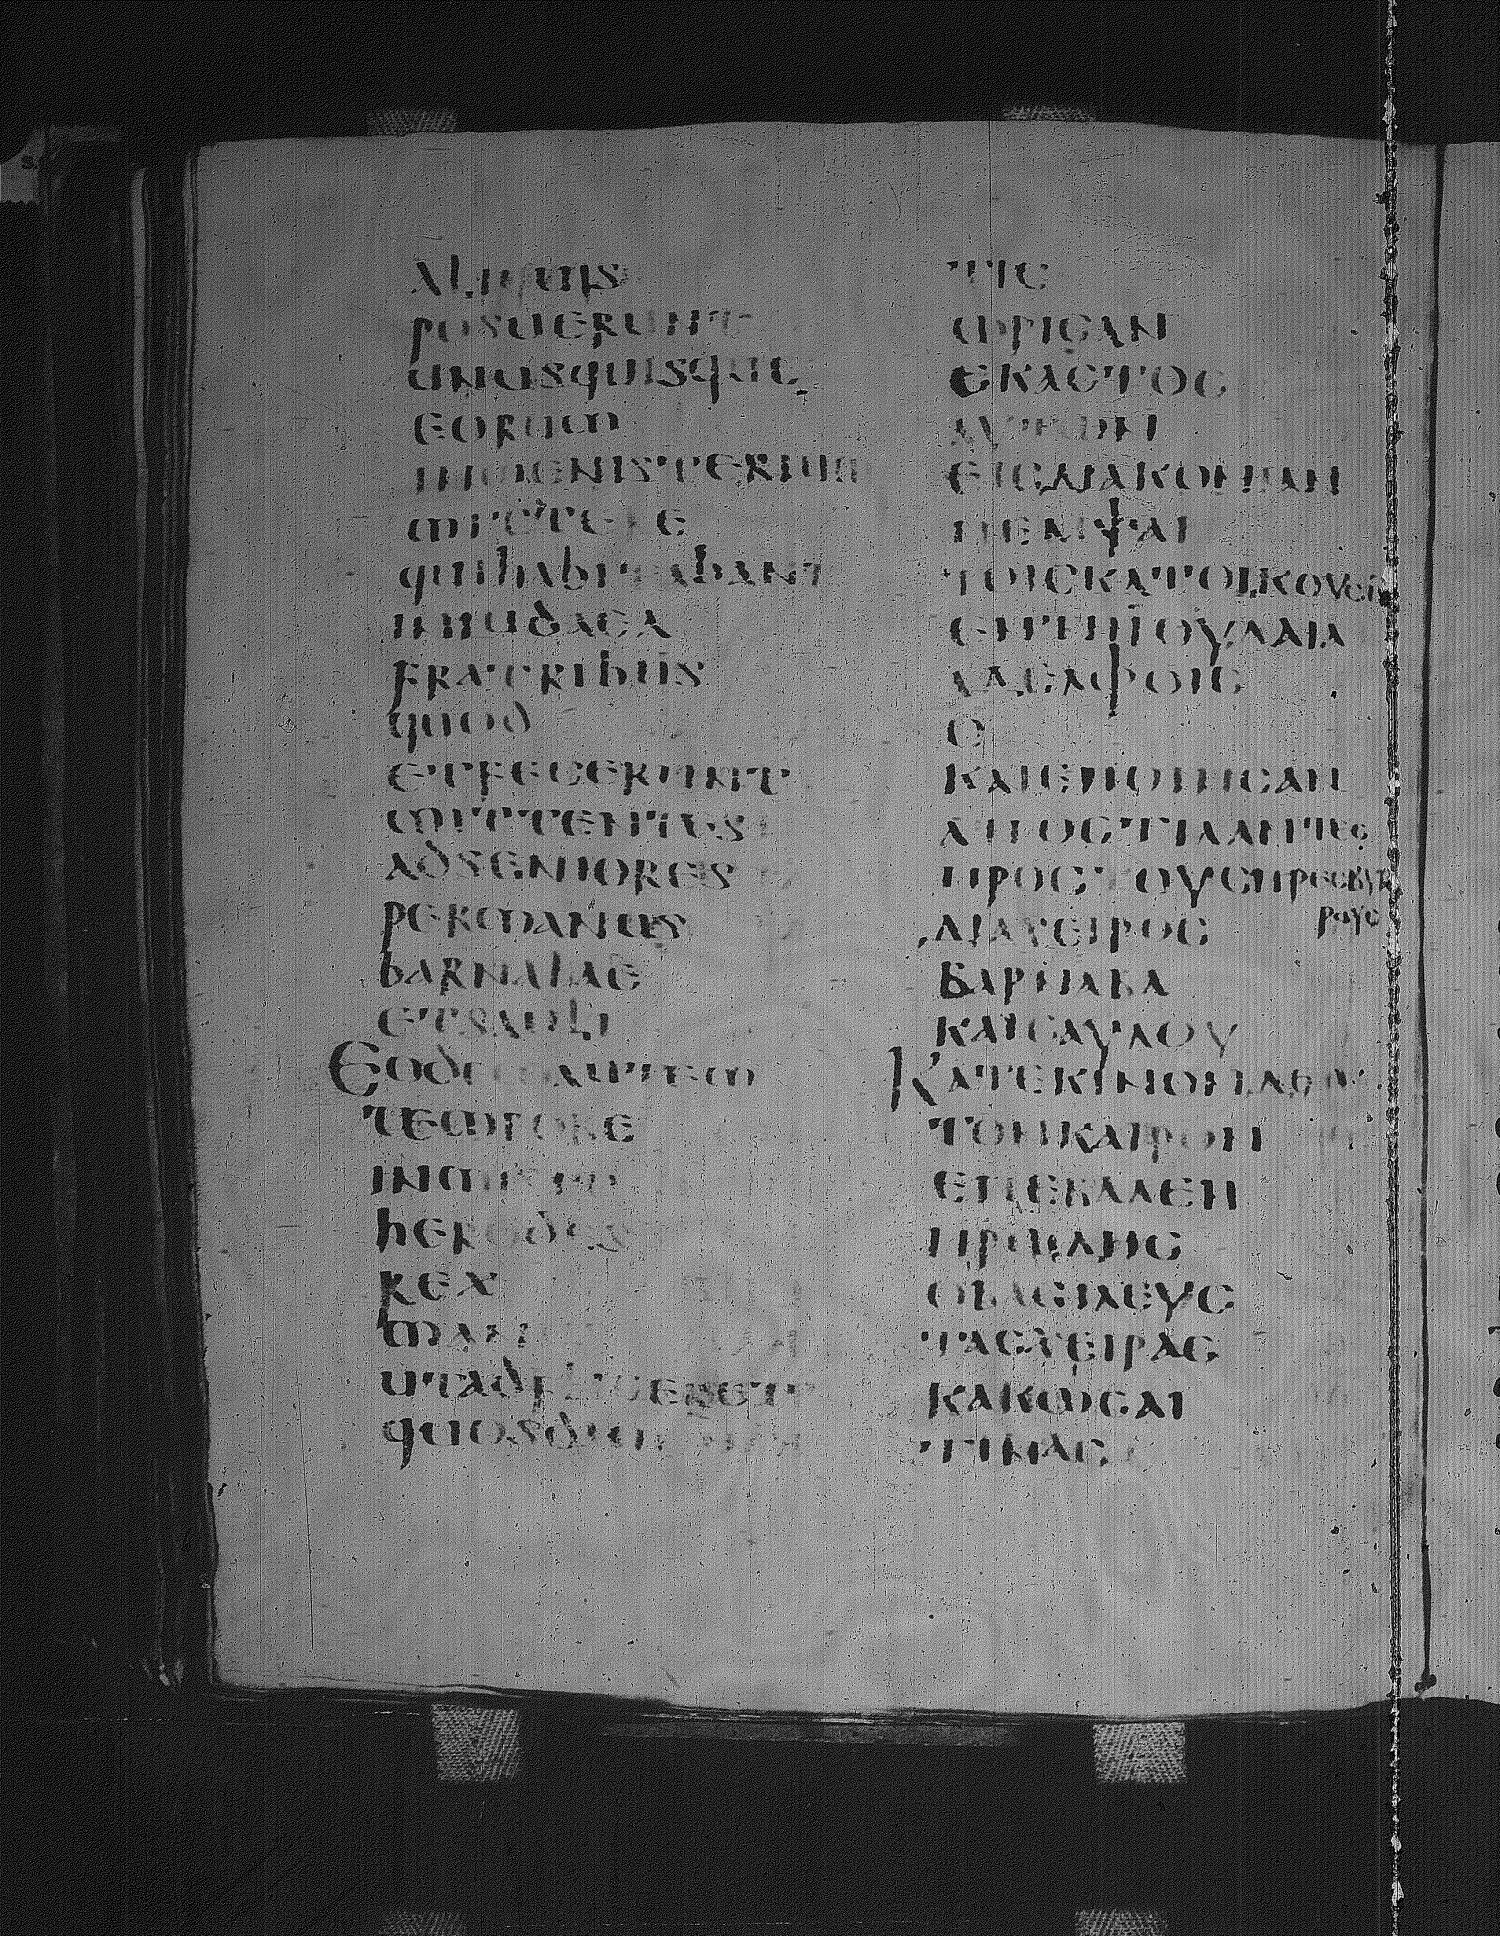 posuerunt
unusquisque
eorum
inmenisterium
mittere
quihabitabant
iniudaea
fratribus
quod
etfecerunt
mittentes
adseniores
permanus
barnabae
etsauli
Eodem autem
tempore
inmisit
herodes
rex
manus
utadfligeret
quosdam
ΤΙϹ
ΩΡΙϹΑΝ
ΕΚΑϹΤΟϹ
ΑΥΤΩΝ
ΕΙϹΔΙΑΚΟΝΙΑΝ
ΠΕΜΨΑΙ
ΤΟΙϹΚΑΤΟΙΚΟΥϹΙΝ
ΕΝΤΗΙΟΥΔΑΙΑ
ΑΔΕΛΦΟΙϹ
Ο
ΚΑΙΕΠΟΙΗϹΑΝ
ΑΠΟϹΤΙΛΑΝΤΕϹ
ΠΡΟϹΤΟΥϹΠΡΕϹΒΥΤΕ
ΡΟΥϹ
ΔΙΑΧΕΙΡΟϹ
ΒΑΡΝΑΒΑ
ΚΑΙϹΑΥΛΟΥ
ΚΑΤΕΚΙΝΟΝΔΕ
ΤΟΝΚΑΙΡΟΝ
ΕΠΕΒΑΛΕΝ
ΗΡΩΔΗϹ
ΟΒΑϹΙΛΕΥϹ
ΤΑϹΧΕΙΡΑϹ
ΚΑΚΩϹΑΙ
ΤΙΝΑϹ